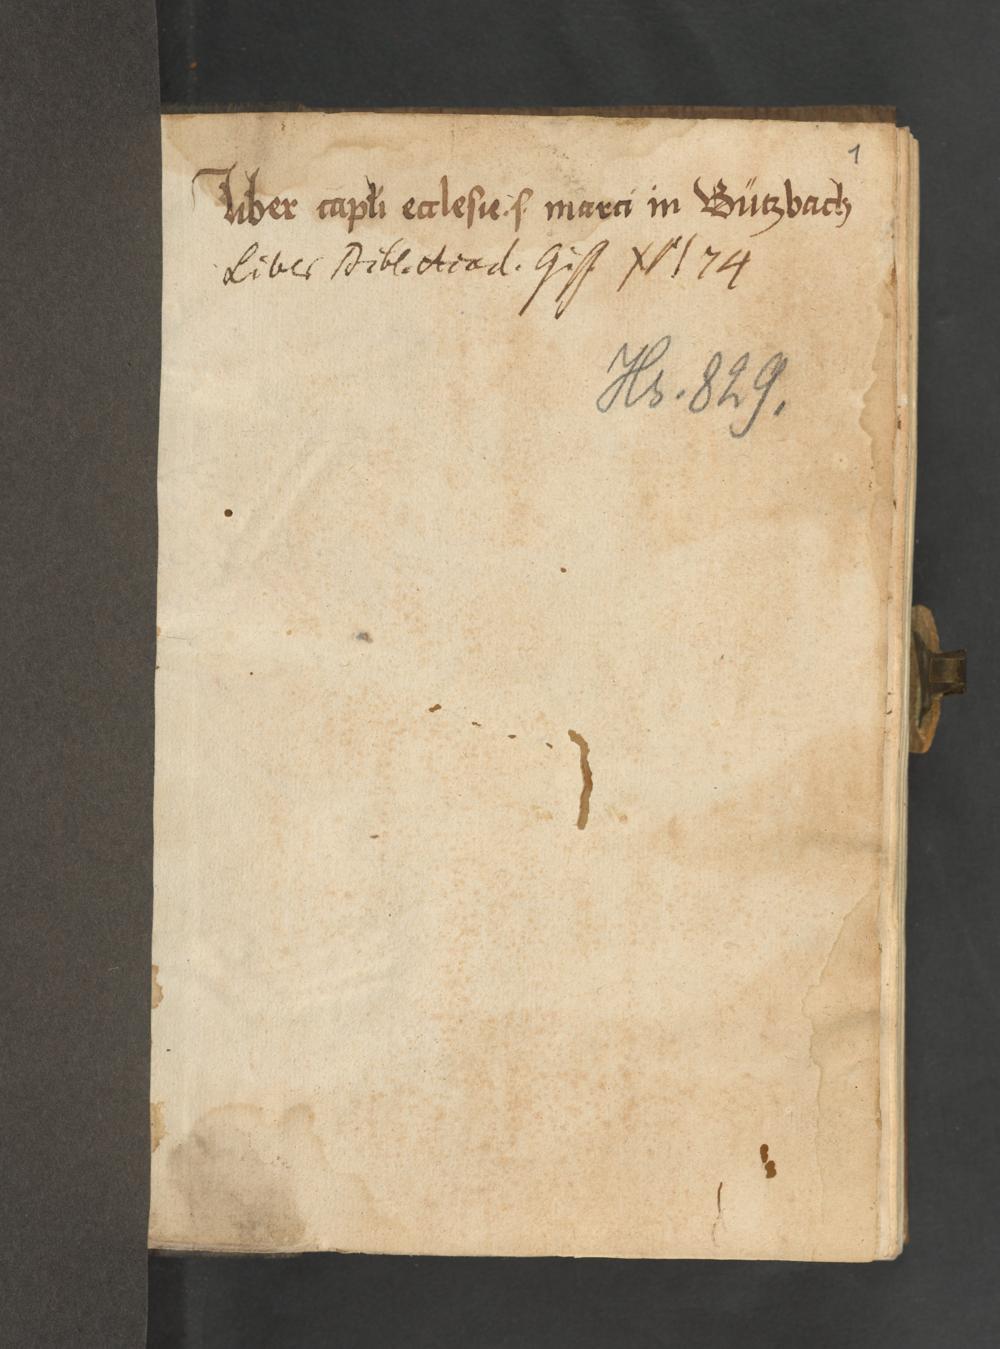 1
Liber capłi ecclesie .s. marci in Bützbach
Liber Bibl. Acad. Giss
Hs. 829.